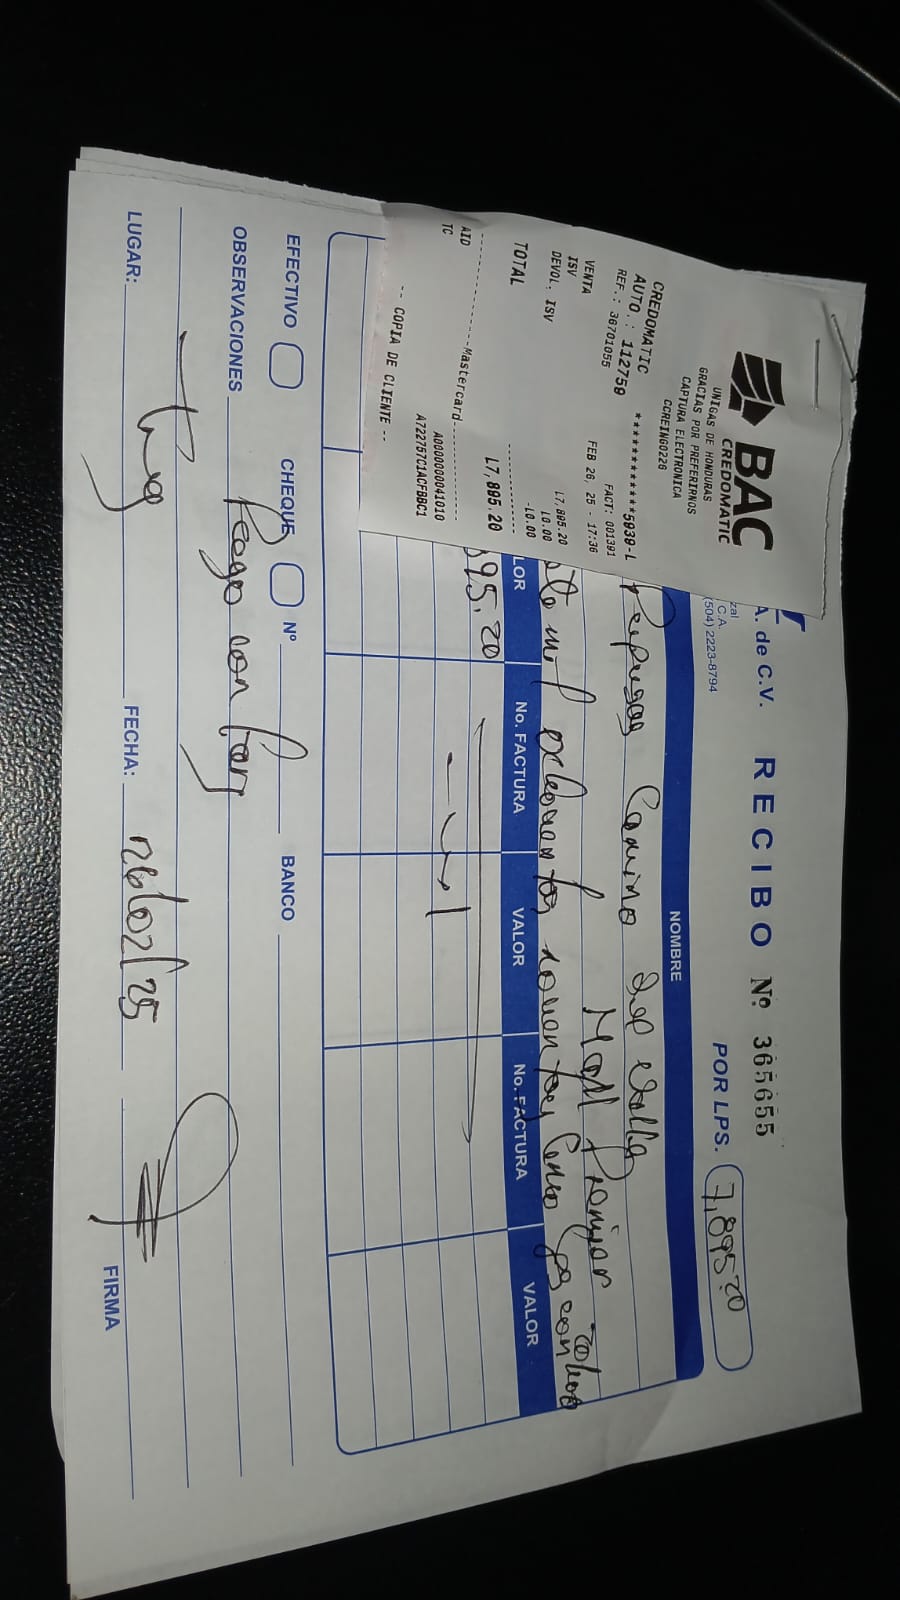 BAC
CREDOMATIC
UNIGAS DE HONDURAS
GRACIAS POR PREFERIRNOS
CAPTURA ELECTRONICA
CCREING0226
CREDOMATIC ************5939-L
AUTO.: 112759 FACT: 001391
REF.: 36701055 FEB 26, 25 - 17:36
VENTA L7,895.20
ISV L0.00
DEVOL. ISV -L0.00
TOTAL L7,895.20
Mastercard
AID A0000000041010
TC A722757C1ACFBBC1
-- COPIA DE CLIENTE --
A. de C.V. RECIBO Nº 365655
zal
C.A.
(504) 2223-8794
POR LPS. 7,895.20
NOMBRE
Pupusas Camino del Valle
Mall Premier
mil ochocientos noventa y cinco con
LOR No. FACTURA VALOR No. FACTURA VALOR
95.20
EFECTIVO CHEQUE Nº BANCO
OBSERVACIONES Pago con
LUGAR: Teg FECHA: 26/02/25 FIRMA